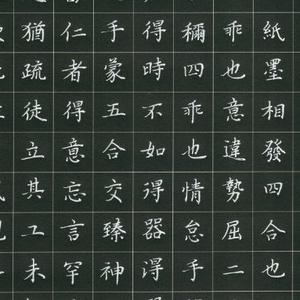 紙墨相發四合也
乖也意違勢屈二
穪四乖也情怠手
得時不如得器得
手蒙五合交臻神
仁者得意忘言罕
猶疏徒立其工未